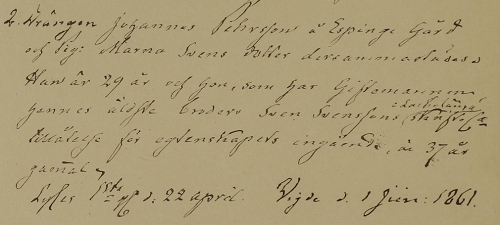 2. Drängen Johannes Pehrsson å Espinge Gård
och Pig: Marna Svens dotter dersammastädes.
Han är 29 år och hon, som har Giftomannen
hennes äldste broders Sven Svenssons skriftliga
tillåtelse för egtenskapets ingående, är 37 år
gammal,
Lyses 1sta g. d. 22 april. Vigde d. 1 Juni: 1861.